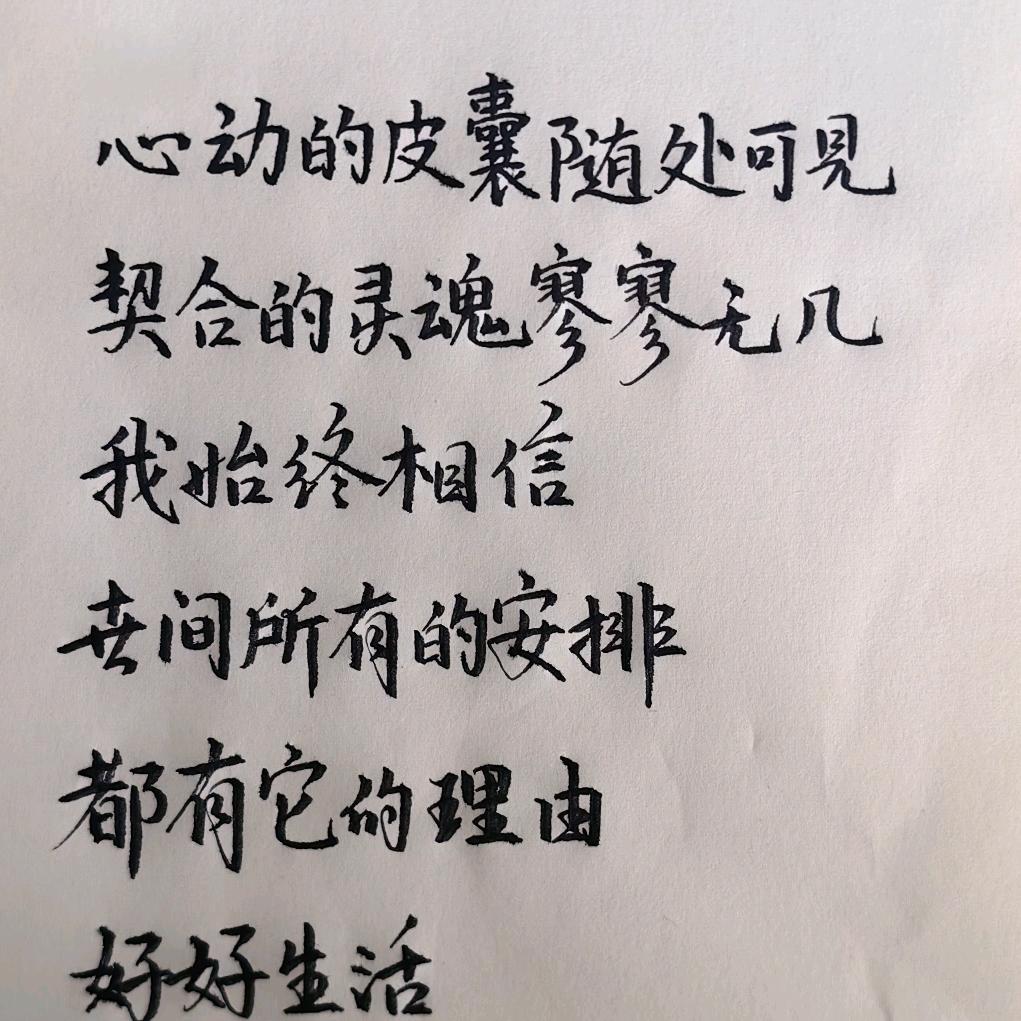 心动的皮囊随处可见
契合的灵魂寥寥无几
我始终相信
世间所有的安排
都有它的理由
好好生活